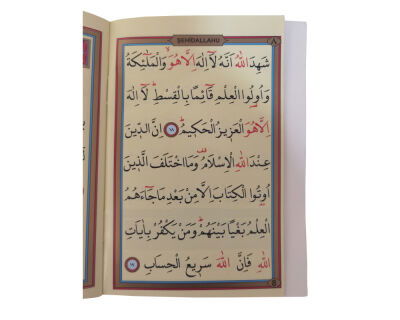 ŞEHİDALLAHU
٨
شَهِدَ اللّٰهُ اَنَّهُ لَٓا اِلٰهَ اِلَّا هُوَۙ وَالْمَلٰٓئِكَةُ
وَاُو۬لُوا الْعِلْمِ قَٓائِمًا بِالْقِسْطِۜ لَٓا اِلٰهَ
اِلَّا هُوَ الْعَزِيزُ الْحَكِيمُۜ ﴿١٨﴾ اِنَّ الدِّينَ
عِنْدَ اللّٰهِ الْاِسْلَامُ۠ وَمَا اخْتَلَفَ الَّذِينَ
اُو۫تُوا الْكِتَابَ اِلَّا مِنْ بَعْدِ مَا جَٓاءَهُمُ
الْعِلْمُ بَغْيًا بَيْنَهُمْۜ وَمَنْ يَكْفُرْ بِاٰيَاتِ
اللّٰهِ فَاِنَّ اللّٰهَ سَرِيعُ الْحِسَابِ ﴿١٩﴾